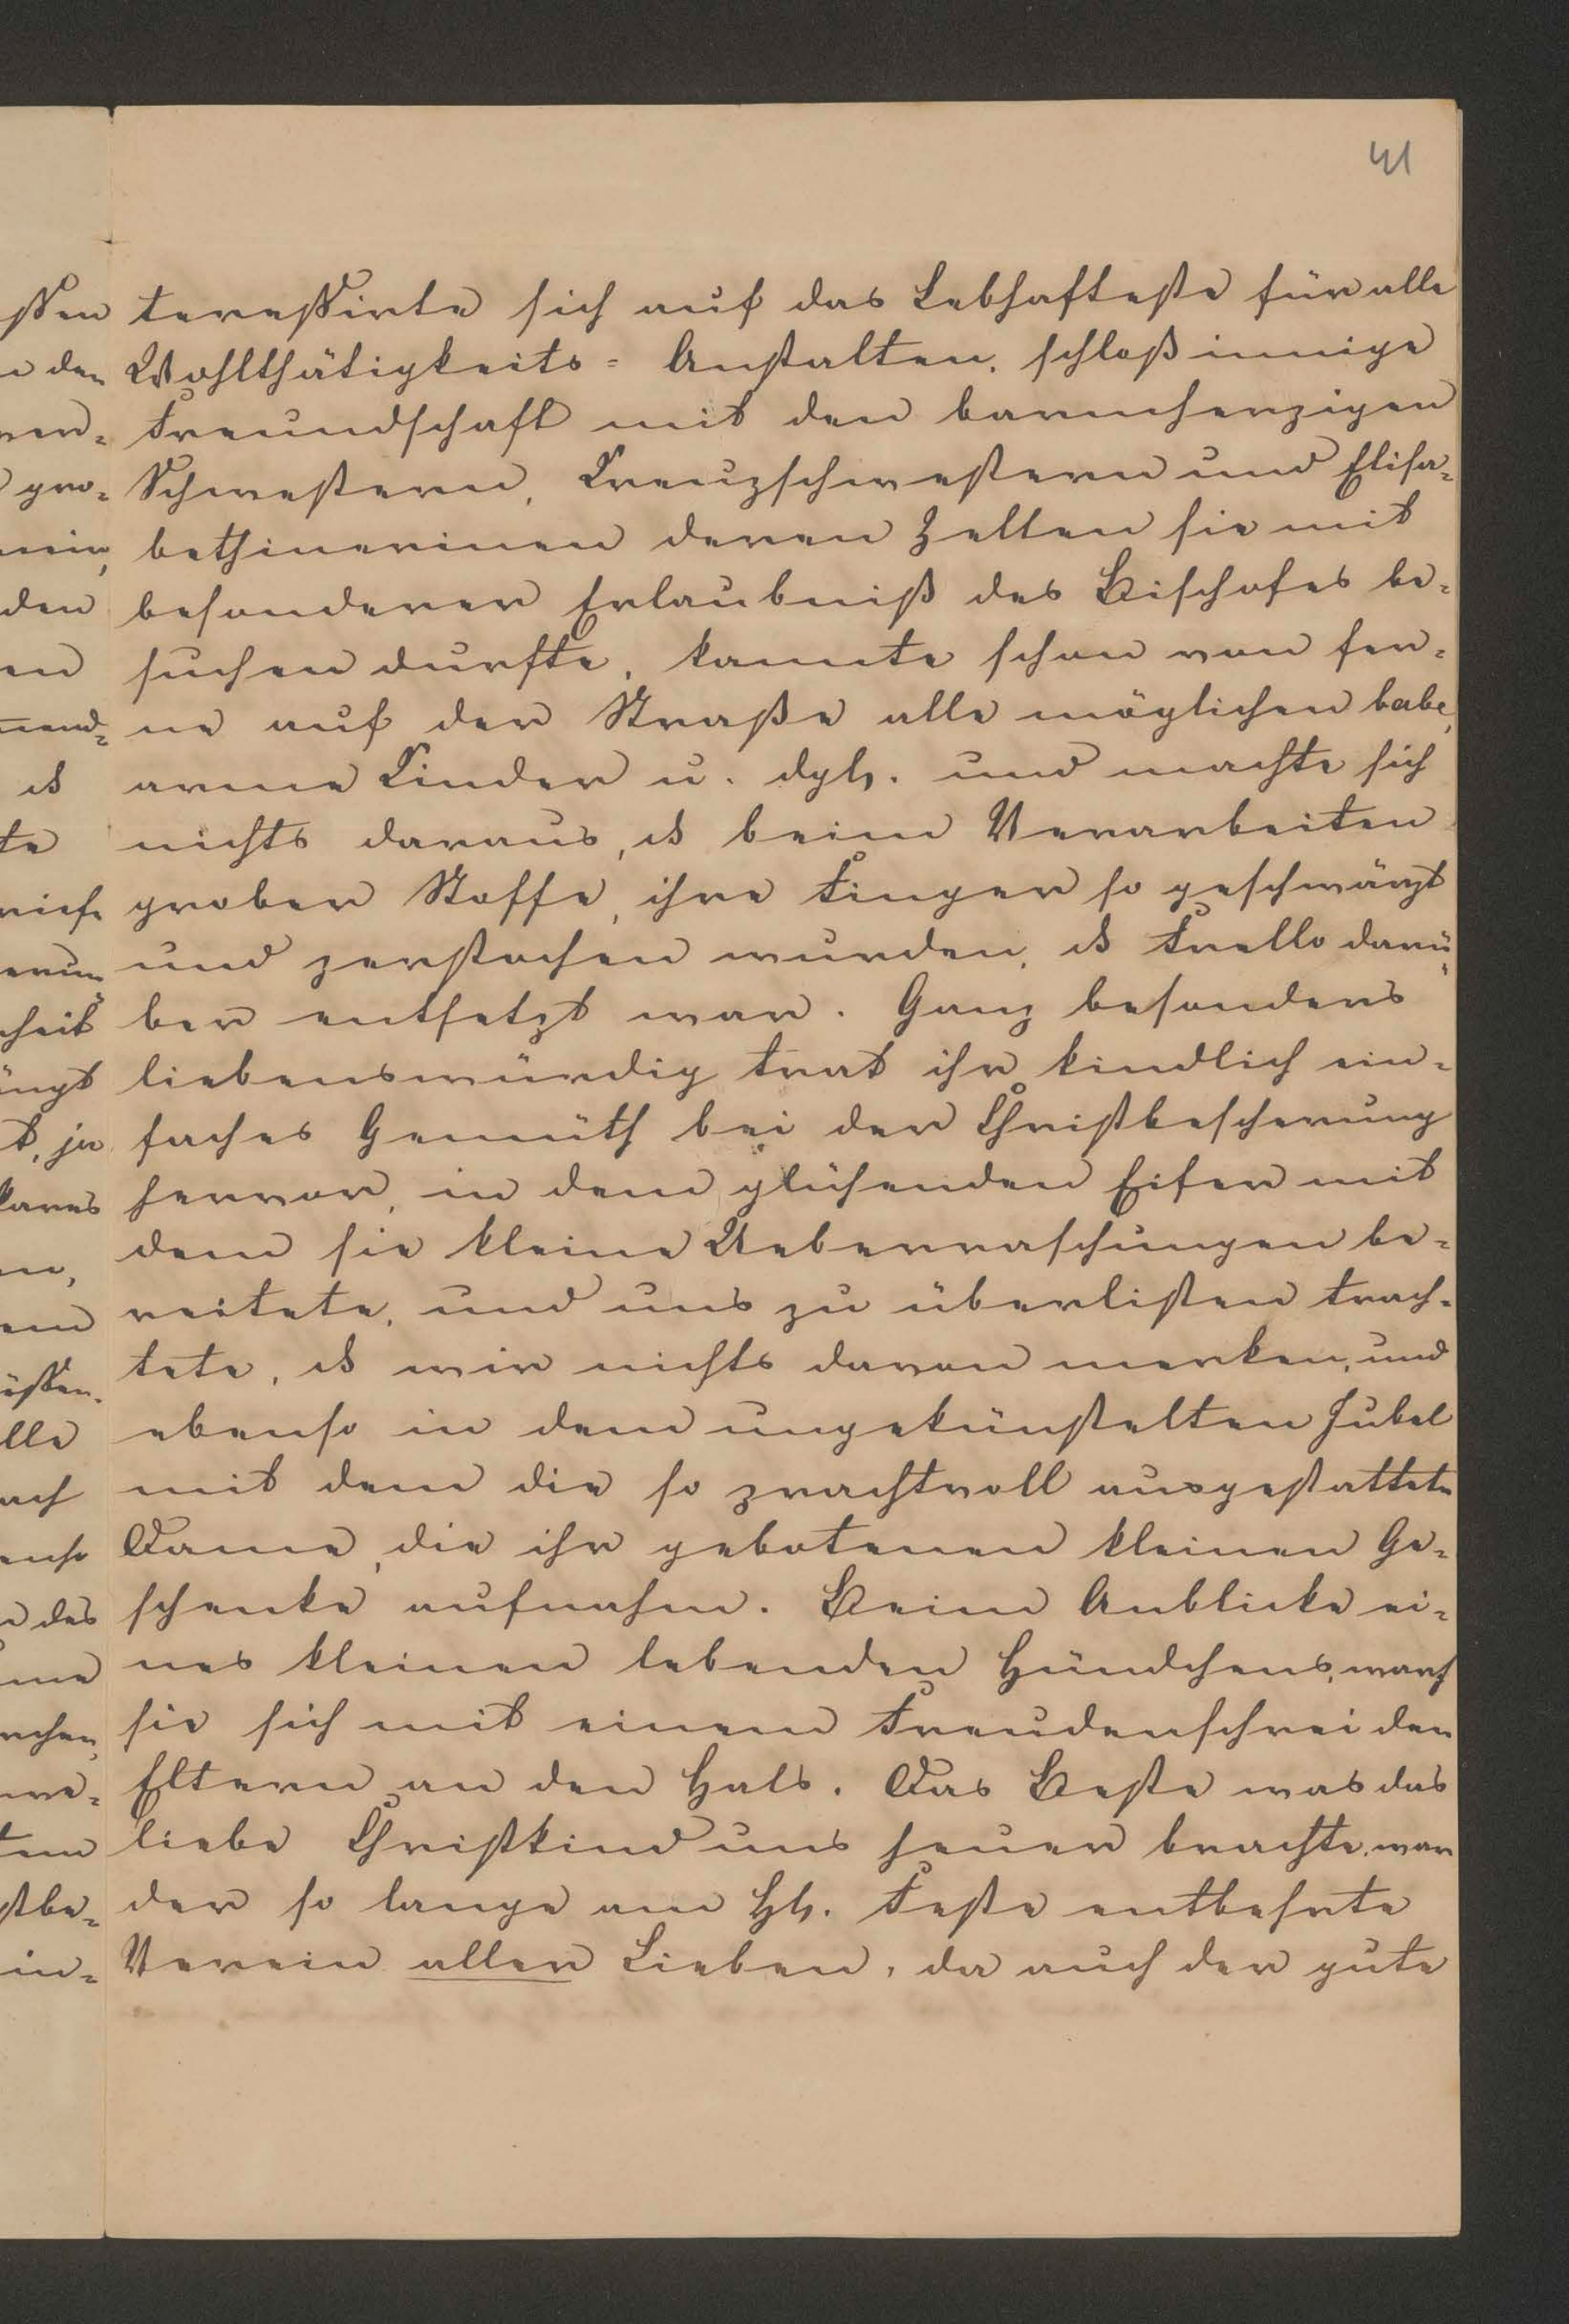 41
teressirte sich auf das Lebhafteste für alle
Wohlthätigkeits= Anstalten, schloß innige
Freundschaft mit den barmherzigen
Schwestern, Kreuzschwestern und Elisa=
bethinerinen deren Zellen sie mit
besonderer Erlaubniß des Bischofes be=
suchen durfte, kannte schon von fer=
ne auf der Straße alle möglichen babe,
arme Kinder u. dgl. und machte sich
nichts daraus, dß beim Verarbeiten
grober Stoffe, ihre Finger so geschwärzt
und zerstochen wurden, dß Frello darü=
ber entsetzt war. Ganz besonders
liebenswürdig trat ihr kindlich ein=
faches Gemüth bei der Christbescherung
hervor, in dem glühenden Eifer mit
dem sie kleine Ueberraschungen be=
reitete, und uns zu überlisten trach=
tete, dß wir nichts davon merken, und
ebenso in dem ungekünstelten Jubel
mit dem die so prachtvoll ausgestattete
Dame, die ihr gebotenen kleinen Ge=
schenke aufnahm. Beim Anblicke ei=
nes kleinen lebenden Hündchens, warf
sie sich mit einem Freudenschrei den
Eltern an den Hals. Das Beste was das
liebe Christkind uns heuer brachte, war
der so lange am Hl. Feste entbehrte
Verein aller Lieben, da auch der gute